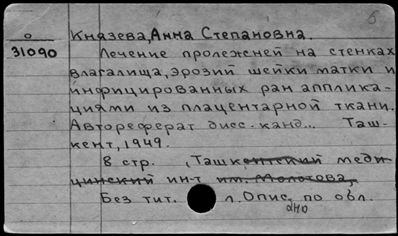 б
о
Князева, Анна Степановна.
31090
Лечение пролежней на стенках
влагалища, эрозий шейки матки и
инфицированных ран апплика-
циями из плацентарной ткани.
Автореферат дисс. канд... Таш-
кент, 1949.
8 стр. , Ташкентский меди-
цинский ин-т им. Молотова,
Без тит. л. Опис. по обл.